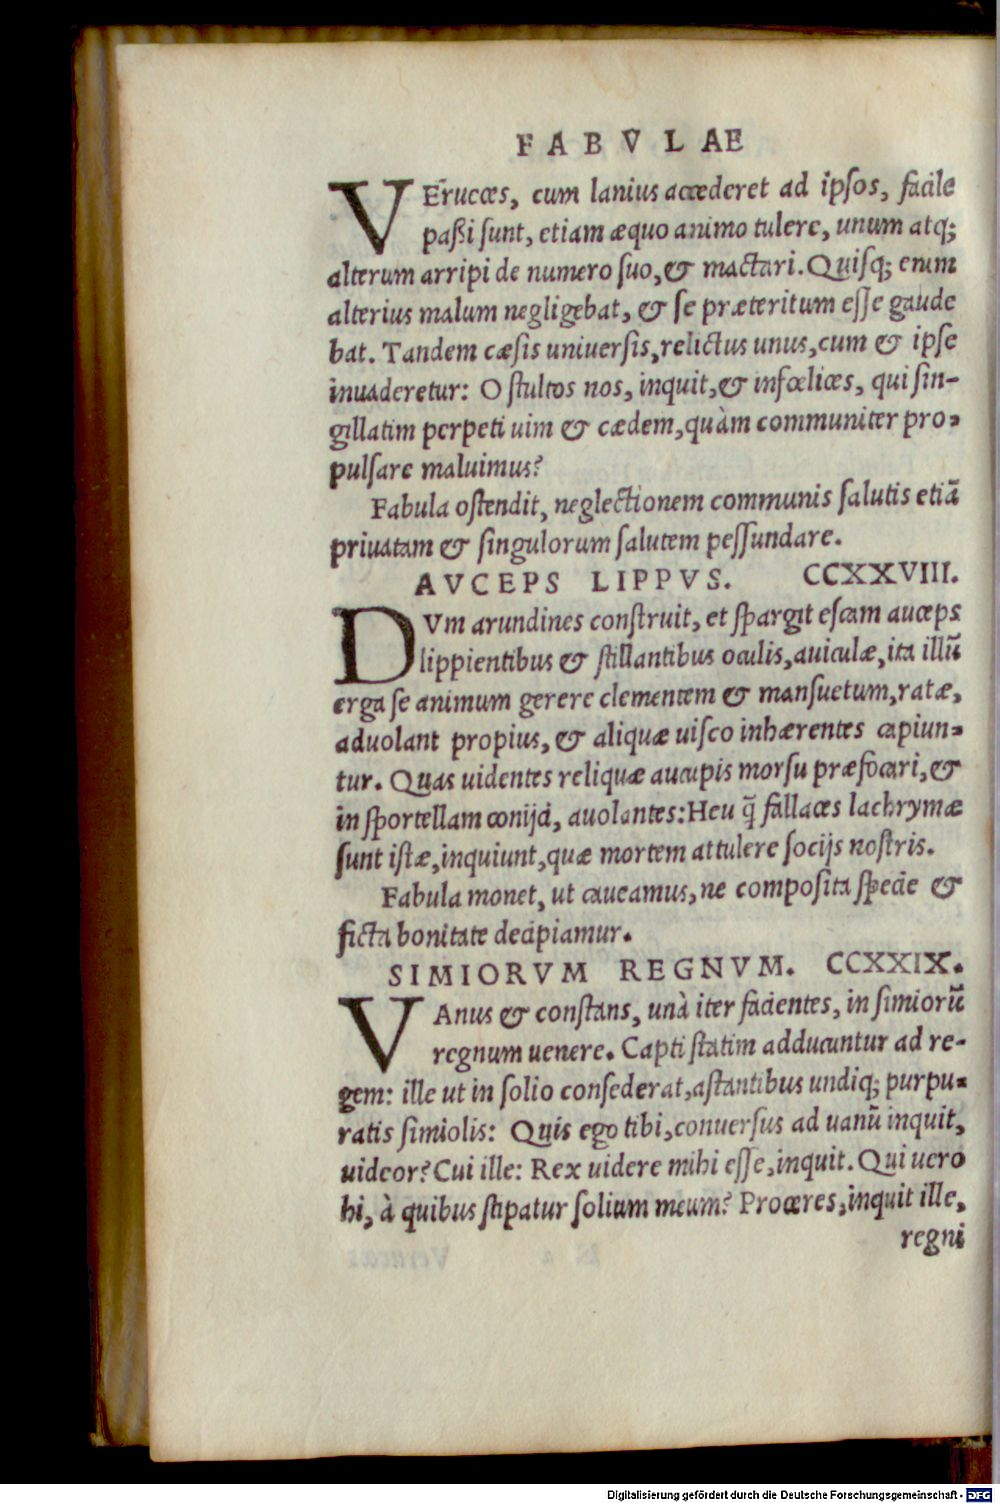 FABVLAE
VEr̄uces, cum lanius accederet ad ipsos, facile
paßi sunt, etiam æquo animo tulere, unum atq;
alterum arripi de numero suo, & mactari. Quisq; enim
alterius malum negligebat, & se præteritum esse gaude
bat. Tandem cæsis uniuersis, relictus unus, cum & ipse
inuaderetur: O stultos nos, inquit, & infœlices, qui sin-
gillatim perpeti uim & cædem, quàm communiter pro-
pulsare maluimus?
Fabula ostendit, neglectionem communis salutis etiā
priuatam & singulorum salutem pessundare.
AVCEPS LIPPVS. CCXXVIII.
DVm arundines construit, et spargit escam auceps
lippientibus & stillantibus oculis, auiculæ, ita illū
erga se animum gerere clementem & mansuetum, ratæ,
aduolant propius, & aliquæ uisco inhærentes capiun-
tur. Quas uidentes reliquæ aucupis morsu præfocari, &
in sportellam conijci, auolantes: Heu q̄ fallaces lachrymæ
sunt istæ, inquiunt, quæ mortem attulere socijs nostris.
Fabula monet, ut caueamus, ne composita specie &
ficta bonitate decipiamur.
SIMIORVM REGNVM. CCXXIX.
VAnus & constans, unà iter facientes, in simiorū
regnum uenere. Capti statim adducuntur ad re-
gem: ille ut in solio consederat, astantibus undiq; purpu-
ratis simiolis: Quis ego tibi, conuersus ad uanū inquit,
uideor? Cui ille: Rex uidere mihi esse, inquit. Qui uero
hi, à quibus stipatur solium meum? Proceres, inquit ille,
regni
Digitalisierung gefördert durch die Deutsche Forschungsgemeinschaft - DFG